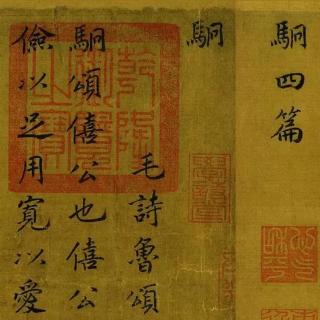 駉四篇
駉
毛詩魯頌
駉頌僖公也僖公
儉以足用寬以愛